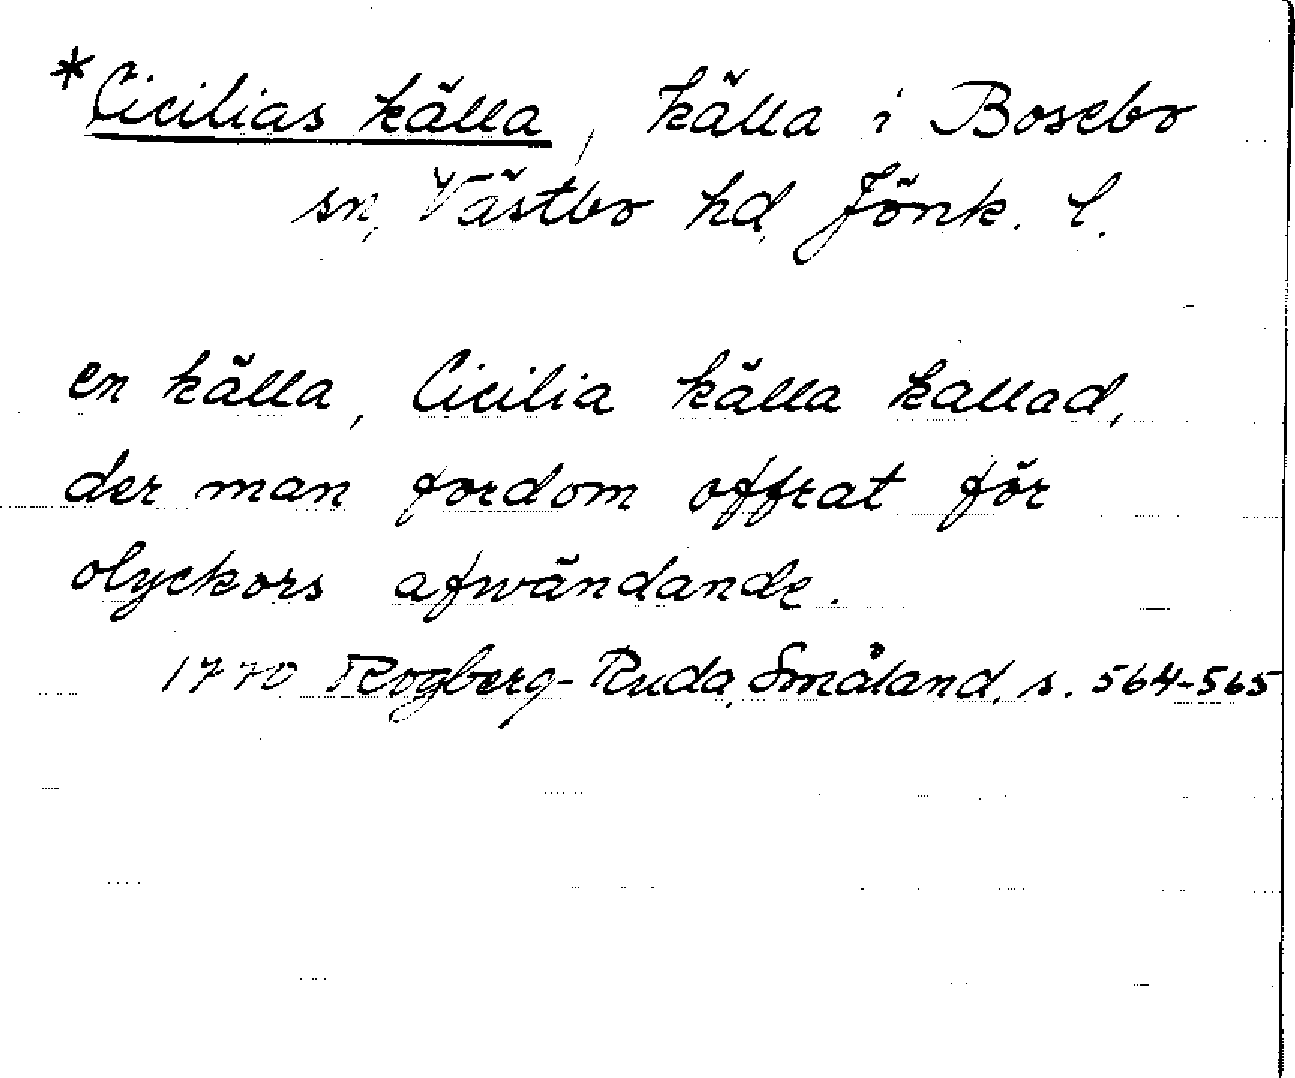 *Cicilias källa, källa i Bosebo
sn, Västbo hd, Jönk. l.
en källa, Cicilia källa kallad,
der man fordom offrat för
olyckors afwändande.
1770 Rogberg-Ruda, Småland, s. 564-565